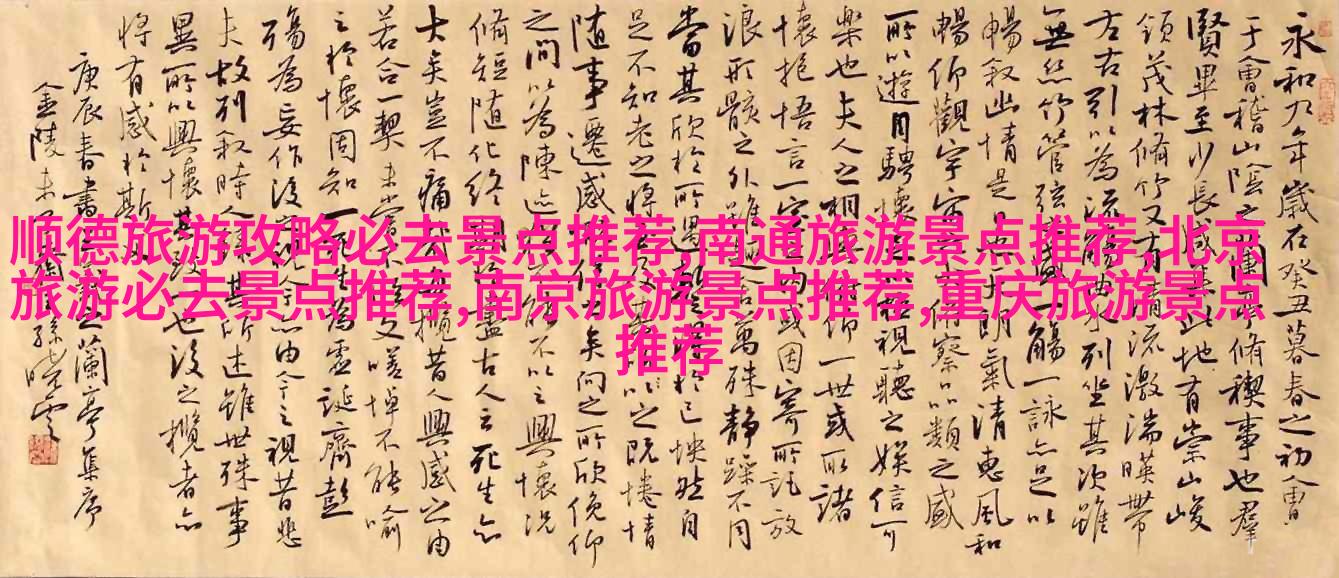 顺德旅游攻略必去景点推荐,南通旅游景点推荐,北京
旅游必去景点推荐,南京旅游景点推荐,重庆旅游景点
推荐
永和九年歲在癸丑暮春之初會
于會稽山陰之蘭亭脩禊事也羣
賢畢至少長咸集此地有崇山峻
領茂林脩竹又有清流激湍暎帶
左右引以為流觴曲水列坐其次雖
無絲竹管弦之盛一觴一詠亦足以
暢叙幽情是日也天朗氣清惠風和
暢仰觀宇宙之大俯察品類之盛
所以遊目騁懷足以極視聽之娛信可
樂也夫人之相與俯仰一世或取諸
懷抱悟言一室之內或因寄所託放
浪形骸之外雖趣舍萬殊靜躁不同
當其欣於所遇暫得於己怏然自
足不知老之將至及其所之既惓情
隨事遷感慨係之矣向之所欣俛仰
之間以為陳迹猶不能不以之興懷況
脩短隨化終期於盡古人云死生亦
大矣豈不痛哉每攬昔人興感之由
若合一契未嘗不臨文嗟悼不能喻
之於懷固知一死生為虛誕齊彭
殤為妄作後之視今亦由今之視昔悲
夫故列叙時人錄其所述雖世殊事
異所以興懷其致一也後之攬者亦
將有感於斯文
庚辰春書蘭亭集序
金陵孫曉雲